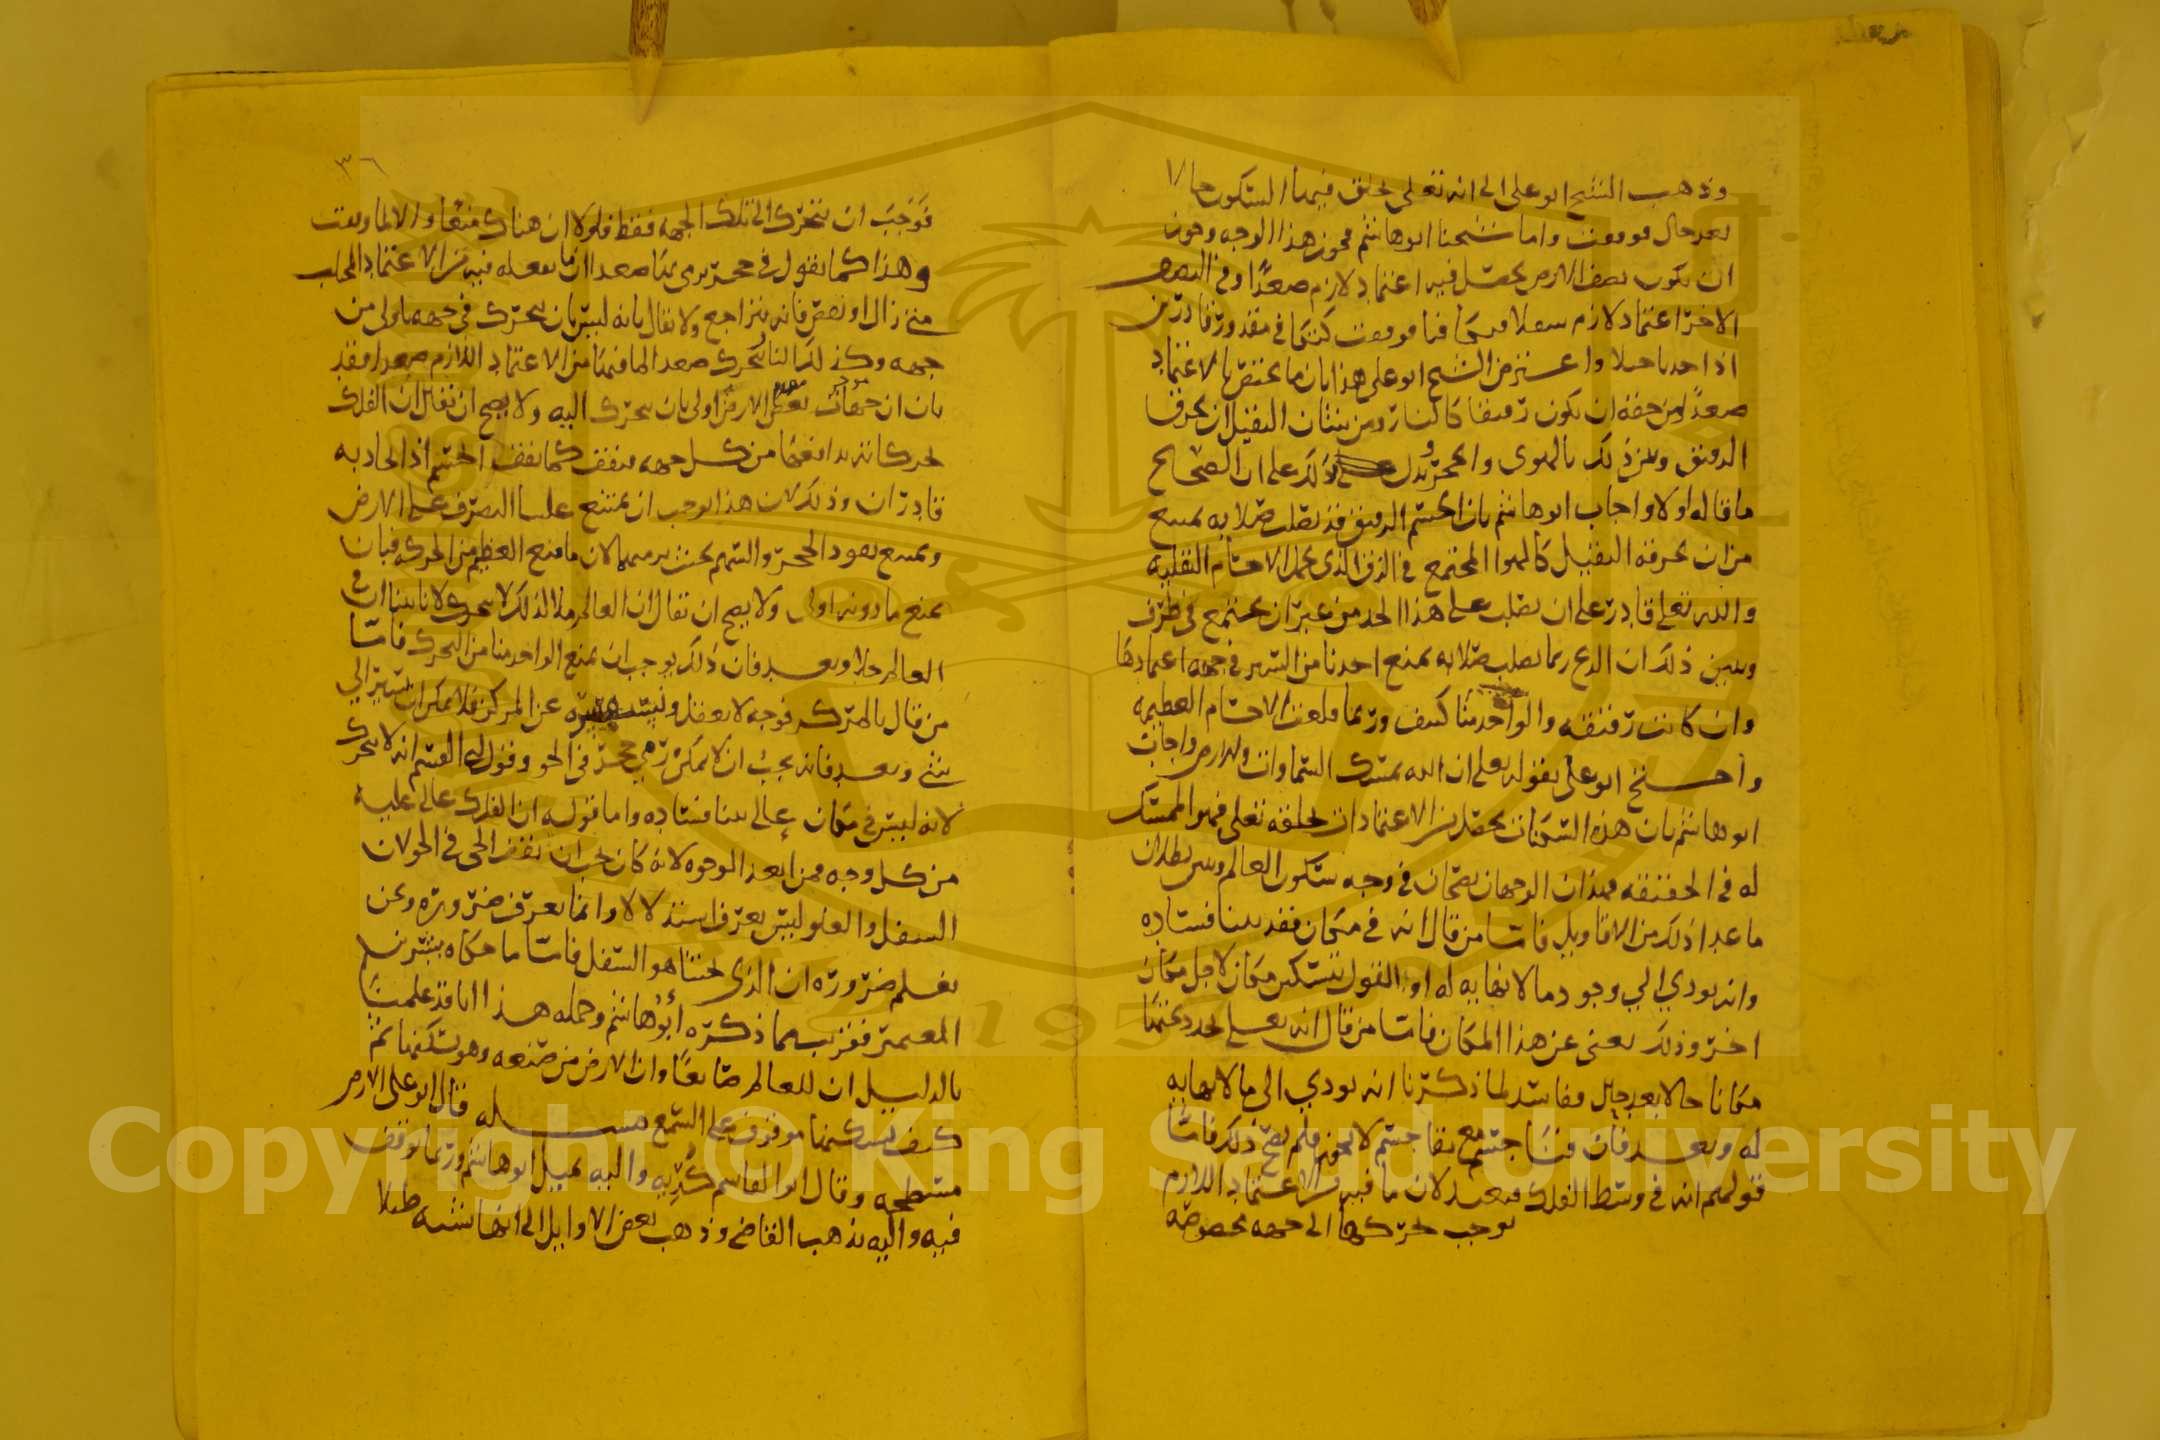 وذهب الشيخ ابو على الى انه تعلى يخلق فيها السكون حالا
بعد حال فوقفت واما شيخنا ابو هاشم فجوز هذا الوجه وجوز
ان يكون نصف الارض يحصل فيه اعتماد لازم صعدًا وفي النصف
الاخر اعتماد لازم سفلا فوقفت في مقدور قادرين
اذا واعترض الشيخ ابو على هذا بان ما يختص بالاعتماد
صعدًا من حقه ان يكون رقيقا كالنار ومن شان الثقيل ان يخرق
الرقيق وبين ذلك بالهوى والحجر ودل ذلك على ان الصحيح
ما قاله اولا واجاب ابو هاشم بان الجسم الرقيق قد تصلب صلابه تمنع
من ان يخرقه الثقيل كالهوا المجتمع في الزق الذي يحمل الاجسام الثقليه
والله تعلى قادر على ان يصلب على هذا الحد من غير ان يجتمع في ظرف
ويبين ذلك ان الريح ربما تصلب صلابه تمنع احدنا من السير في جهه اعتمادها
وان كانت رقيقه والواحد منا كثيف وربما قلعت الاجسام العظيمه
واحتج ابو على بقوله تعلى ان الله يمسك السماوات والارض واجاب
ابو هاشم بان هذه السكنات تحصل من الاعتمادات يخلقه تعلى فهو الممسك
له في الحقيقه فهذان الوجهان يصحان في وجه سكون العالم وبين بطلان
ما عدا ذلك من الاقاويل فاما من قال انه في مكان فقد بينا فساده
وانه يودي الي وجود ما لا نهايه له او القول بتسكين مكان لا في مكان
اخر وذلك يغنى عن هذا المكان فاما من قال انه تعلى يحدد تحتها
مكانا حالا بعد حال ففاسد لما ذكرنا انه يودي الى ما لا نهايه
له وبعد فان فنا جسم مع بقا جسم لا يجوز فلم يصح ذلك فاما
قولهم انه في وسط الفلك فبعيد لان ما فيه من الاعتماد اللازم
يوجب تحركها الى جهه مخصوصه
٣٦
فوجب ان تتحرك الى تلك الجهه فقط فلولا ان هناك منعًا والا لما وقفت
وهذا كما نقول في حجر يرمى منا صعدا ان ما يفعله فيه من الاعتماد المجلب
متى زال او نقص فانه يتراجع ولا يقال بانه ليس بان يتحرك في جهه باولى من
جهه وكذلك النار تتحرك صعدا لما فيها من الاعتماد اللازم صعدا فقد
بان ان جهات الارض اولى بان يتحرك اليه ولا يصح ان يقال ان الفلك
لحركاته يدافعها من كل جهه فيقف كما يقف الجسم اذا تجاذبه
قادران وذلك لان هذا يوجب ان يمتنع علينا التصرف على الارض
ويمتنع نفود الحجر والسهم بحيث نرميها لان ما منع العظيم من الحركه فبان
يمنع ما دونه اولى ولا يصح ان يقال ان العالم ملا لذلك لا يتحرك لانا بينا ان في
العالم خلا وبعد فان ذلك يوجب ان يمنع الواحد منا من التحرك فاما
من قال بالمركز فوجه لا يعقل عن المركز فلا يمكن ان يشير الي
شي وبعد فانه يجب ان لا يمكن رمي حجر في الجو وقول القسم انه لا يتحرك
لانه ليس في مكان عالى بينا فساده واما قوله ان الفلك عالى عليه
من كل وجه فمن ابعد الوجوه لانه كان يجب ان تقف الحى في الجو لان
السفل والعلو ليس يعرف استدلالا وانما يعرف ضروره ونحن
نعلم ضروره ان الذي تحتنا هو السفل فاما ما حكاه بشر بن
المعتمر فقريب مما ذكره أبو هاشم وجمله هذا انا قد علمنا
بالدليل ان للعالم صانعًا وان الارض من صنعه وهو تسكنها ثم
كيف تسكينها موقوف على السمع مسله قال ابو على الارض
مسطحه وقال ابو القاسم كُرِيه واليه يميل ابو هاشم وربما توقف
فيه واليه يذهب القاضي وذهب بعض الاوايل الى انها تشبه طبلا
Copyright © King Saud University
1957